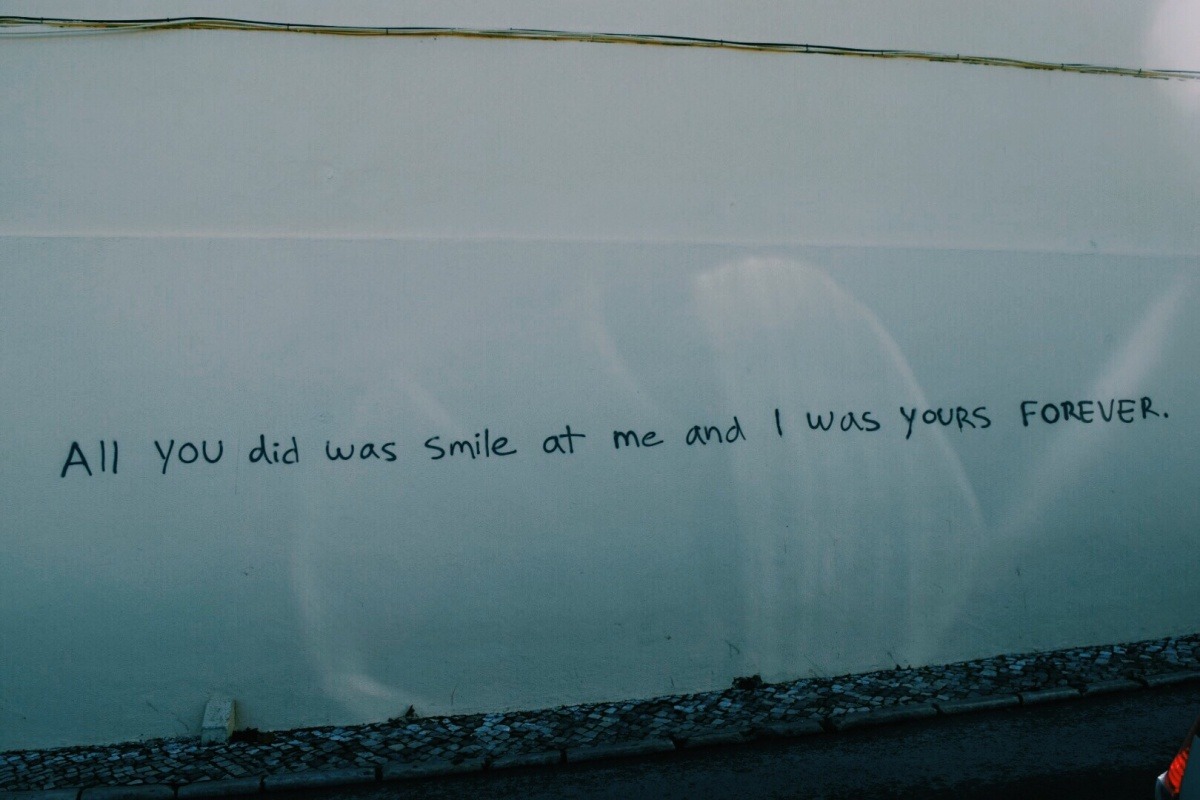 All YOU did was smile at me and I was YOURS FOREVER.